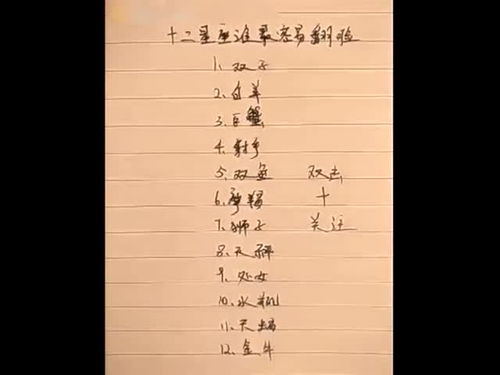 十二星座谁最容易翻脸
1、双子
2、白羊
3、巨蟹
4、射手
5、双鱼 双击
6、摩羯 +
7、狮子 关注
8、天秤
9、处女
10、水瓶
11、天蝎
12、金牛